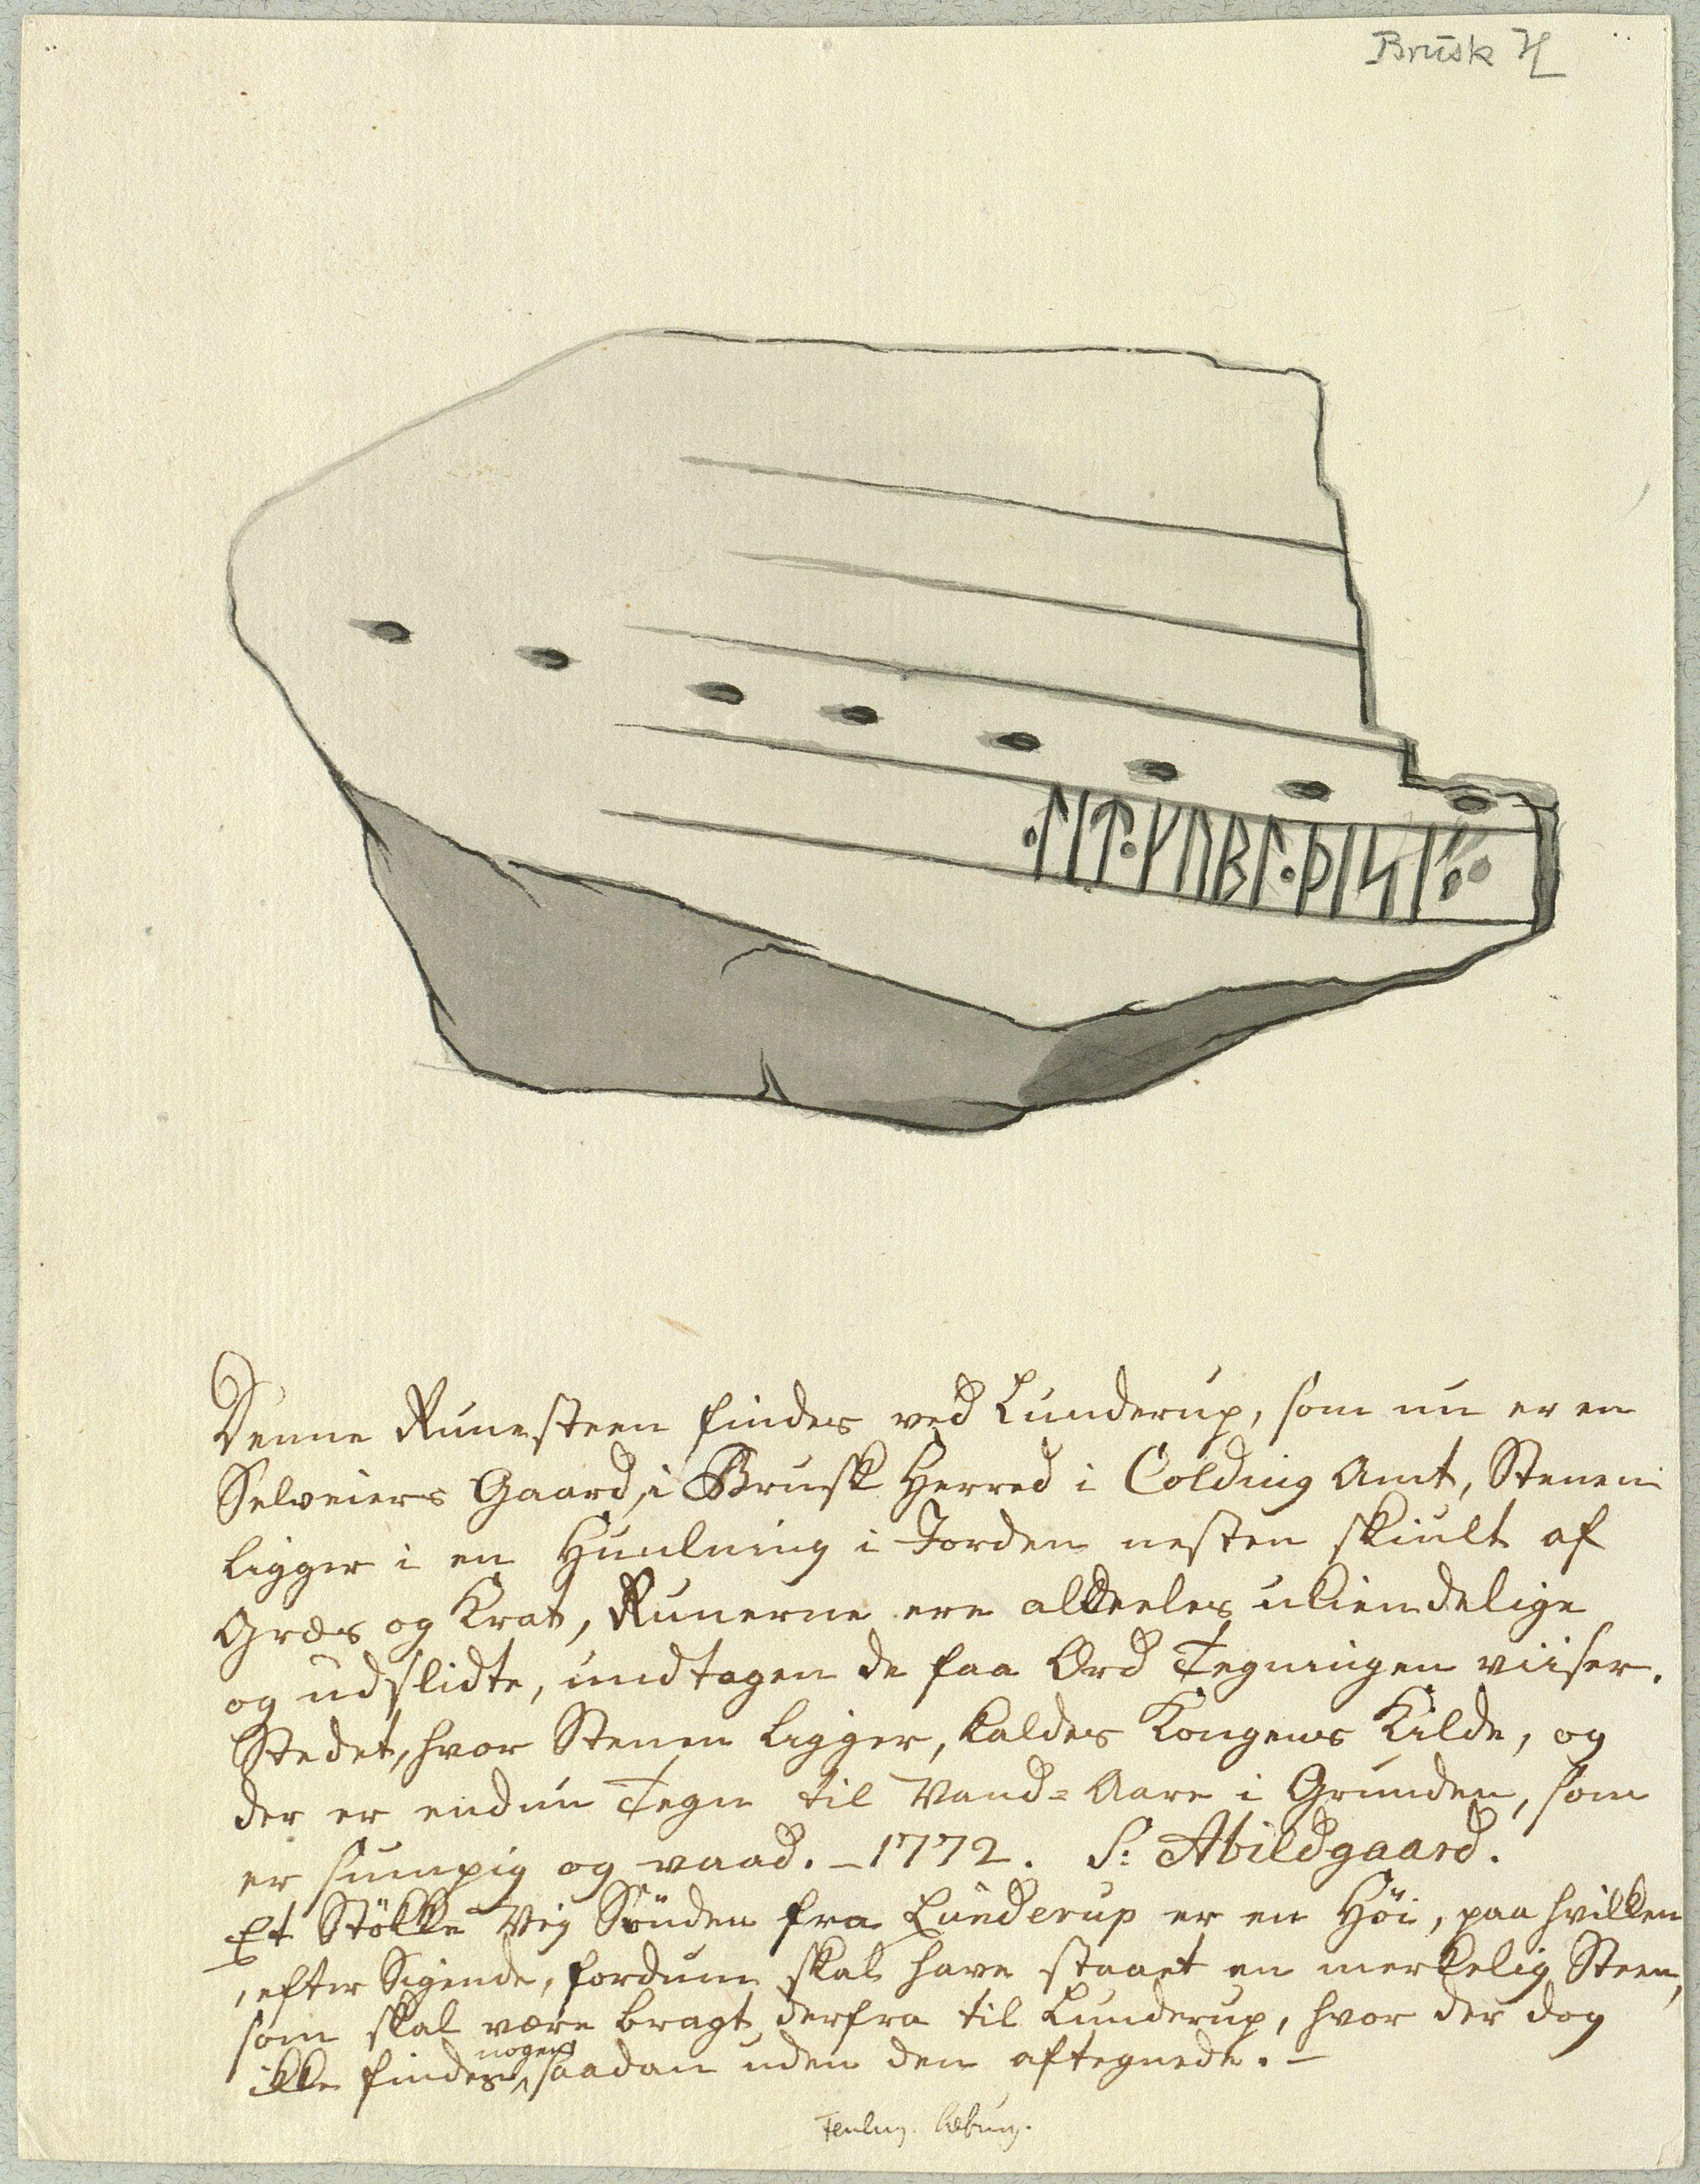 Brusk H
᛫ᛚᛁᛏ᛫ᚴᚢᛒᛚ᛫ᚦᛁᛋᛁ
Denne Runesteen findes ved Lunderup, som nu er en
Selveiers Gaard, i Brusk Herred i Colding Amt, Stenen
ligger i en Huulning i Jorden nesten skiult af
Græs og Krat, Runerne ere aldeeles ukiendelige
og udslidte, undtagen de faa Ord Tegningen viiser.
Stedet, hvor Stenen ligger, kaldes Kongens Kilde, og
der er endnu Tegn til Vand-Aare i Grunden, som
er sumpig og vaad. – 1772. S: Abildgaard.
Et Stökke Vej Sönden fra Lunderup er en Höi, paa hvilken
, efter Sigende, fordum skal have staaet en merkelig Steen,
som skal være bragt derfra til Lunderup, hvor der dog
ikke findes nogen saadan uden den aftegnede. –